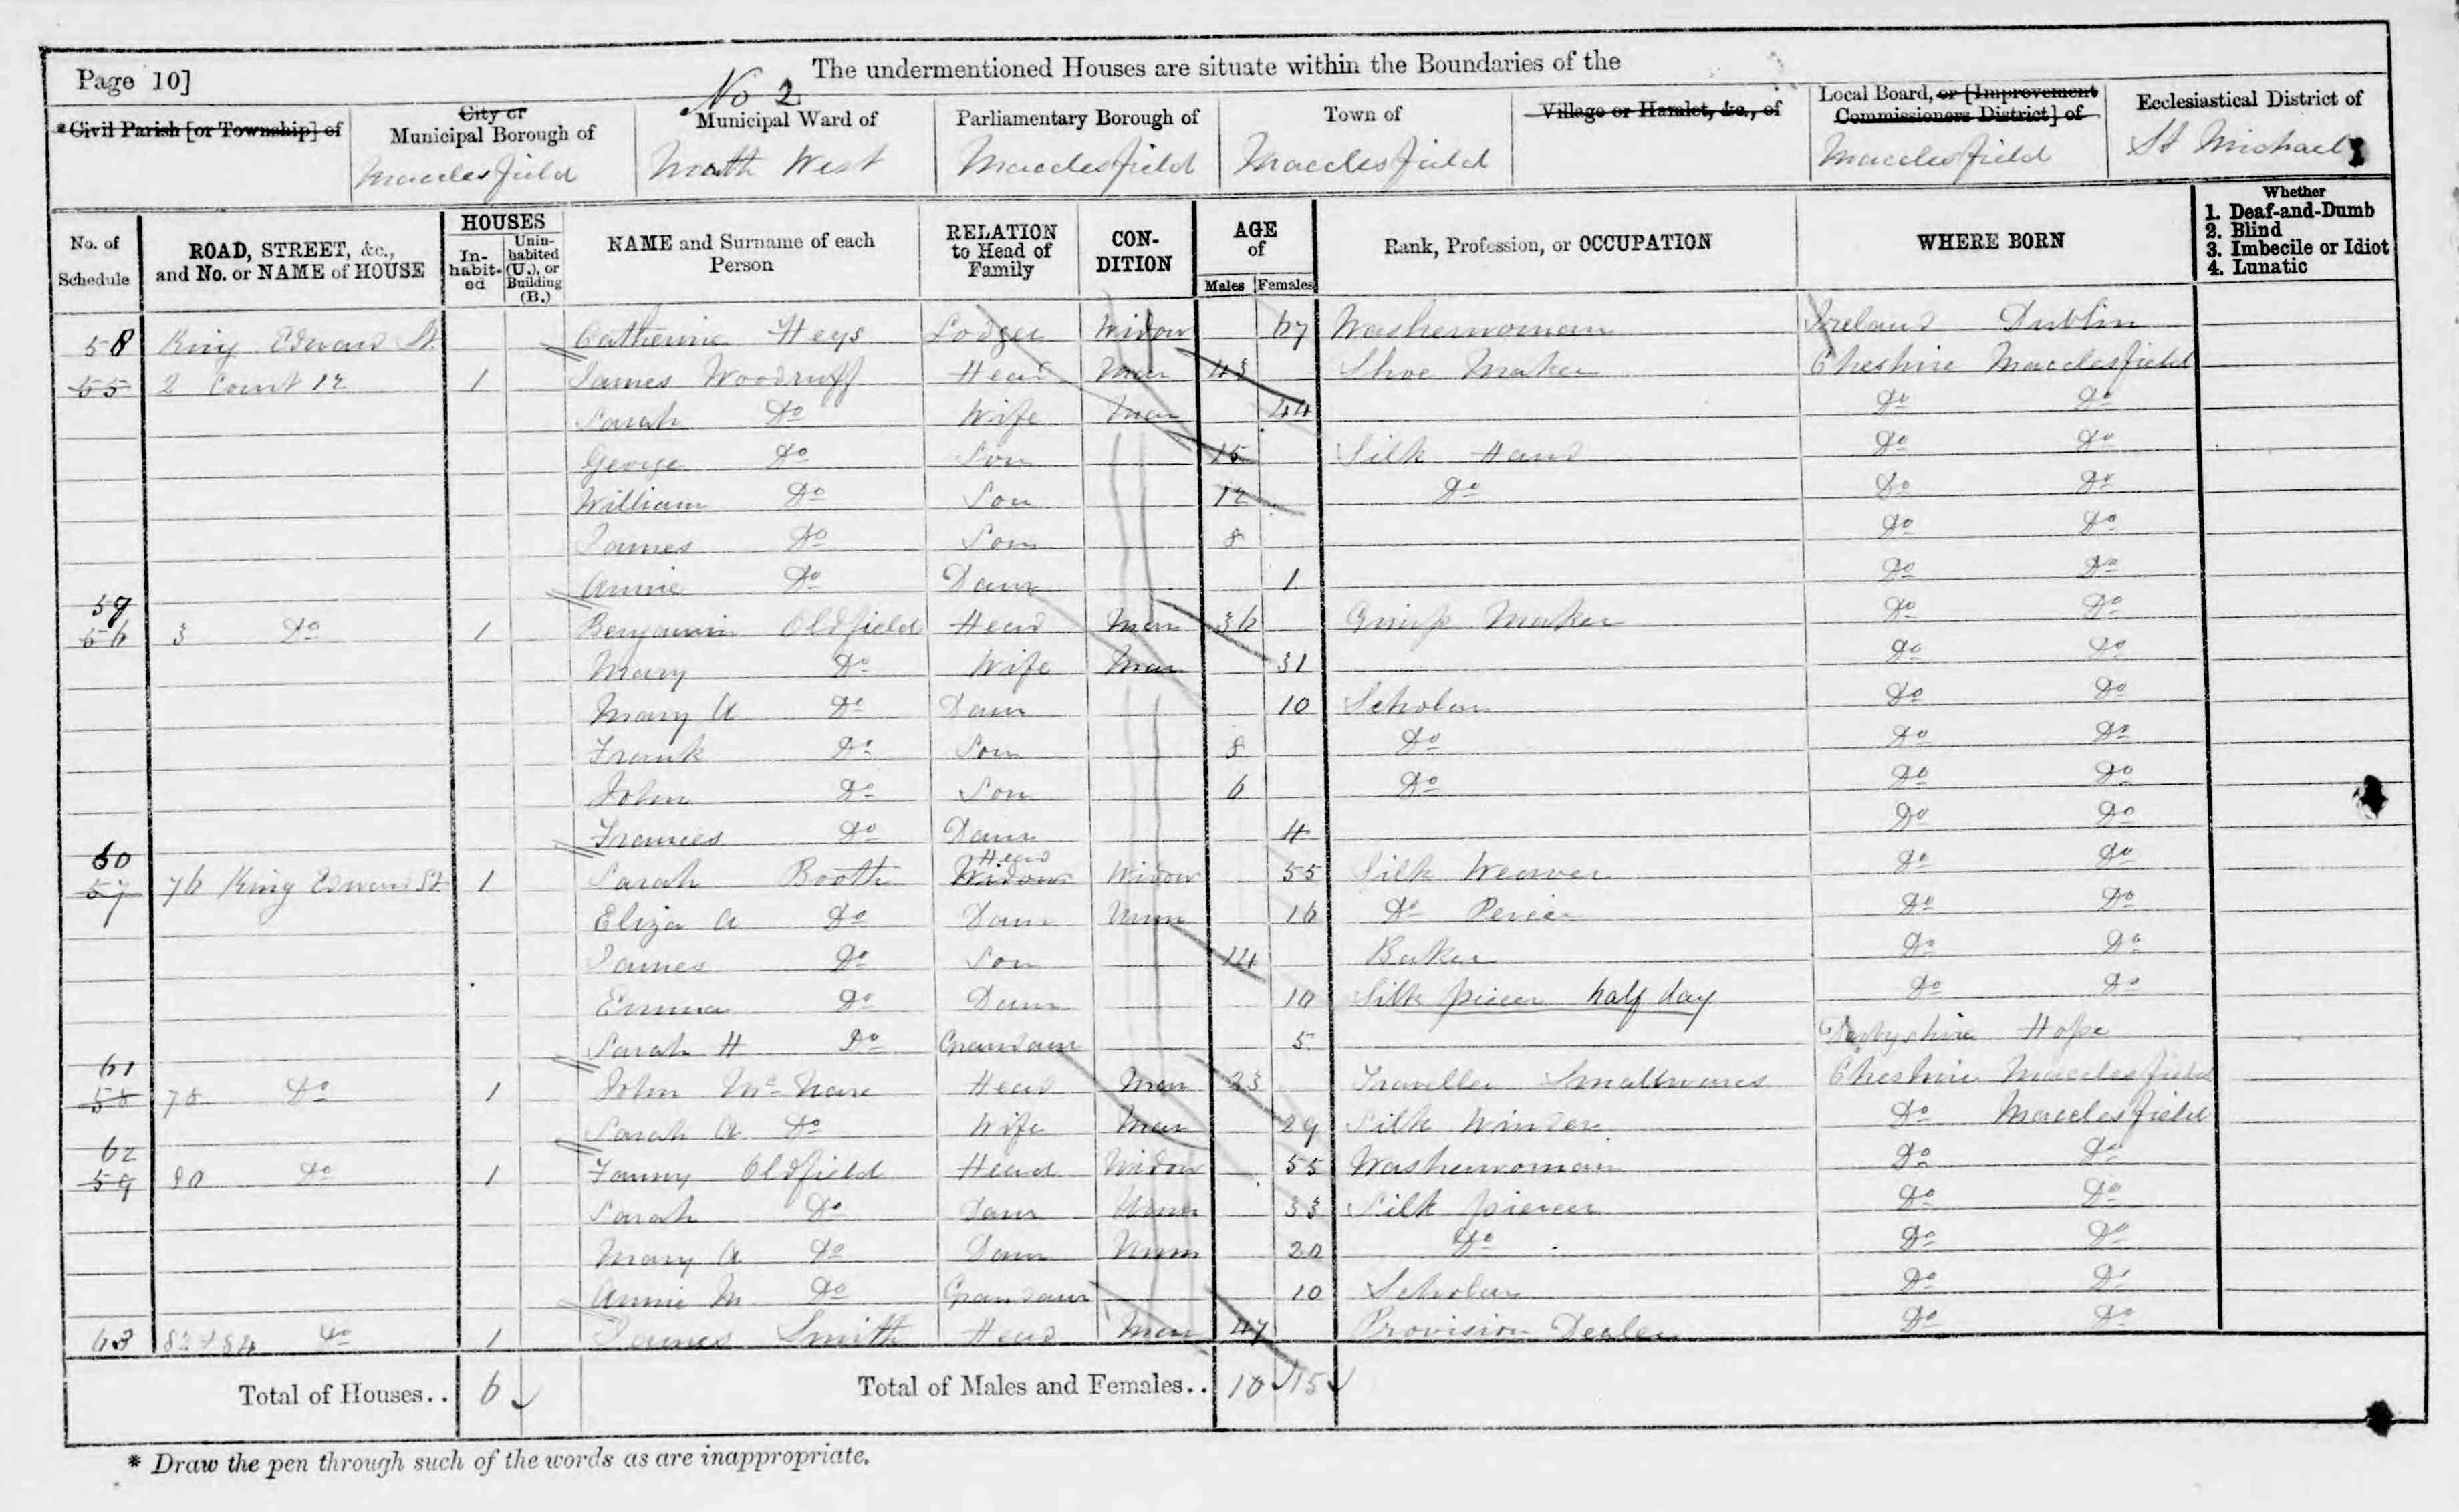 Page 10]
The undermentioned Houses are situate within the Boundaries of the
*Civil Parish [or Township] of
City or Municipal Borough of
Macclesfield
No 2
Municipal Ward of
North West
Parliamentary Borough of
Macclesfield
Town of
Macclesfield
Village or Hamlet, &c., of
Local Board, or [Improvement Commissioners District] of
Macclesfield
Ecclesiastical District of
St Michael
No. of Schedule
ROAD, STREET, &c., and No. or NAME of HOUSE
HOUSES
In-habit-ed
Unin-habited (U.), or Building (B.)
NAME and Surname of each Person
RELATION to Head of Family
CON-DITION
AGE of
Males Females
Rank, Profession, or OCCUPATION
WHERE BORN
Whether
1. Deaf-and-Dumb
2. Blind
3. Imbecile or Idiot
4. Lunatic
58 King Edward St Catherine Heys Lodger Widow 67 Washerwoman Ireland Dublin
55 2 Court 12 1 James Woodruff Head Mar 43 Shoe Maker Cheshire Macclesfield
Sarah Do Wife Mar 44 Do Do
George Do Son 15 Silk Hand Do Do
William Do Son 12 Do Do Do
James Do Son 8 Do Do
Annie Do Daur 1 Do Do
59
56 3 Do 1 Benjamin Oldfield Head Mar 36 Gimp Maker Do Do
Mary Do Wife Mar 31 Do Do
Mary A Do Daur 10 Scholar Do Do
Frank Do Son 8 Do Do Do
John Do Son 6 Do Do Do
Frances Do Daur 4 Do Do
60 Head
57 76 King Edward St 1 Sarah Booth Widow Widow 55 Silk Weaver Do Do
Eliza A Do Daur Unm 16 Do Piecer Do Do
James Do Son 14 Baker Do Do
Emma Do Daur 10 Silk piecer half day Do Do
Sarah H Do Grandaur 5 Derbyshire Hope
61
58 78 Do 1 John Mc Nare Head Mar 23 Traveller Smallwares Cheshire Macclesfield
Sarah A Do Wife Mar 29 Silk Winder Do Macclesfield
62
59 80 Do 1 Fanny Oldfield Head Widow 55 Washerwoman Do Do
Sarah Do Daur Unm 33 Silk piecer Do Do
Mary A Do Daur Unm 20 Do Do Do
Annie M Do Grandaur 10 Scholar Do Do
63 82+84 Do 1 James Smith Head Mar 47 Provision Dealer Do Do
Total of Houses.. 6
Total of Males and Females.. 10 15
* Draw the pen through such of the words as are inappropriate.